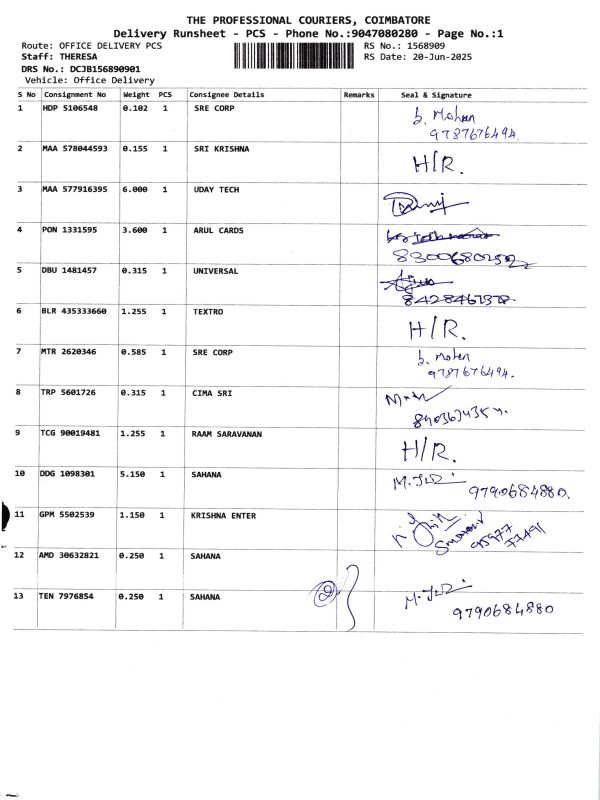 THE PROFESSIONAL COURIERS, COIMBATORE
Delivery Runsheet - PCS - Phone No.:9047080280 - Page No.:1
Route: OFFICE DELIVERY PCS RS No.: 1568909
Staff: THERESA RS Date: 20-Jun-2025
DRS No.: DCJB156890901
Vehicle: Office Delivery
S No Consignment No Weight PCS Consignee Details Remarks Seal & Signature
1 HDP 5106548 0.102 1 SRE CORP b. Mohan
9787676494.
2 MAA 578044593 0.155 1 SRI KRISHNA H/R.
3 MAA 577916395 6.000 1 UDAY TECH
4 PON 1331595 3.600 1 ARUL CARDS
5 DBU 1481457 0.315 1 UNIVERSAL
6 BLR 435333660 1.255 1 TEXTRO H/R.
7 MTR 2620346 0.585 1 SRE CORP b. Mohan
9787676494.
8 TRP 5601726 0.315 1 CIMA SRI
9 TCG 90019481 1.255 1 RAAM SARAVANAN H/R.
10 DDG 1098301 5.150 1 SAHANA
9790684880.
11 GPM 5502539 1.150 1 KRISHNA ENTER
95977
77491
12 AMD 30632821 0.250 1 SAHANA
13 TEN 7976854 0.250 1 SAHANA
9790684880